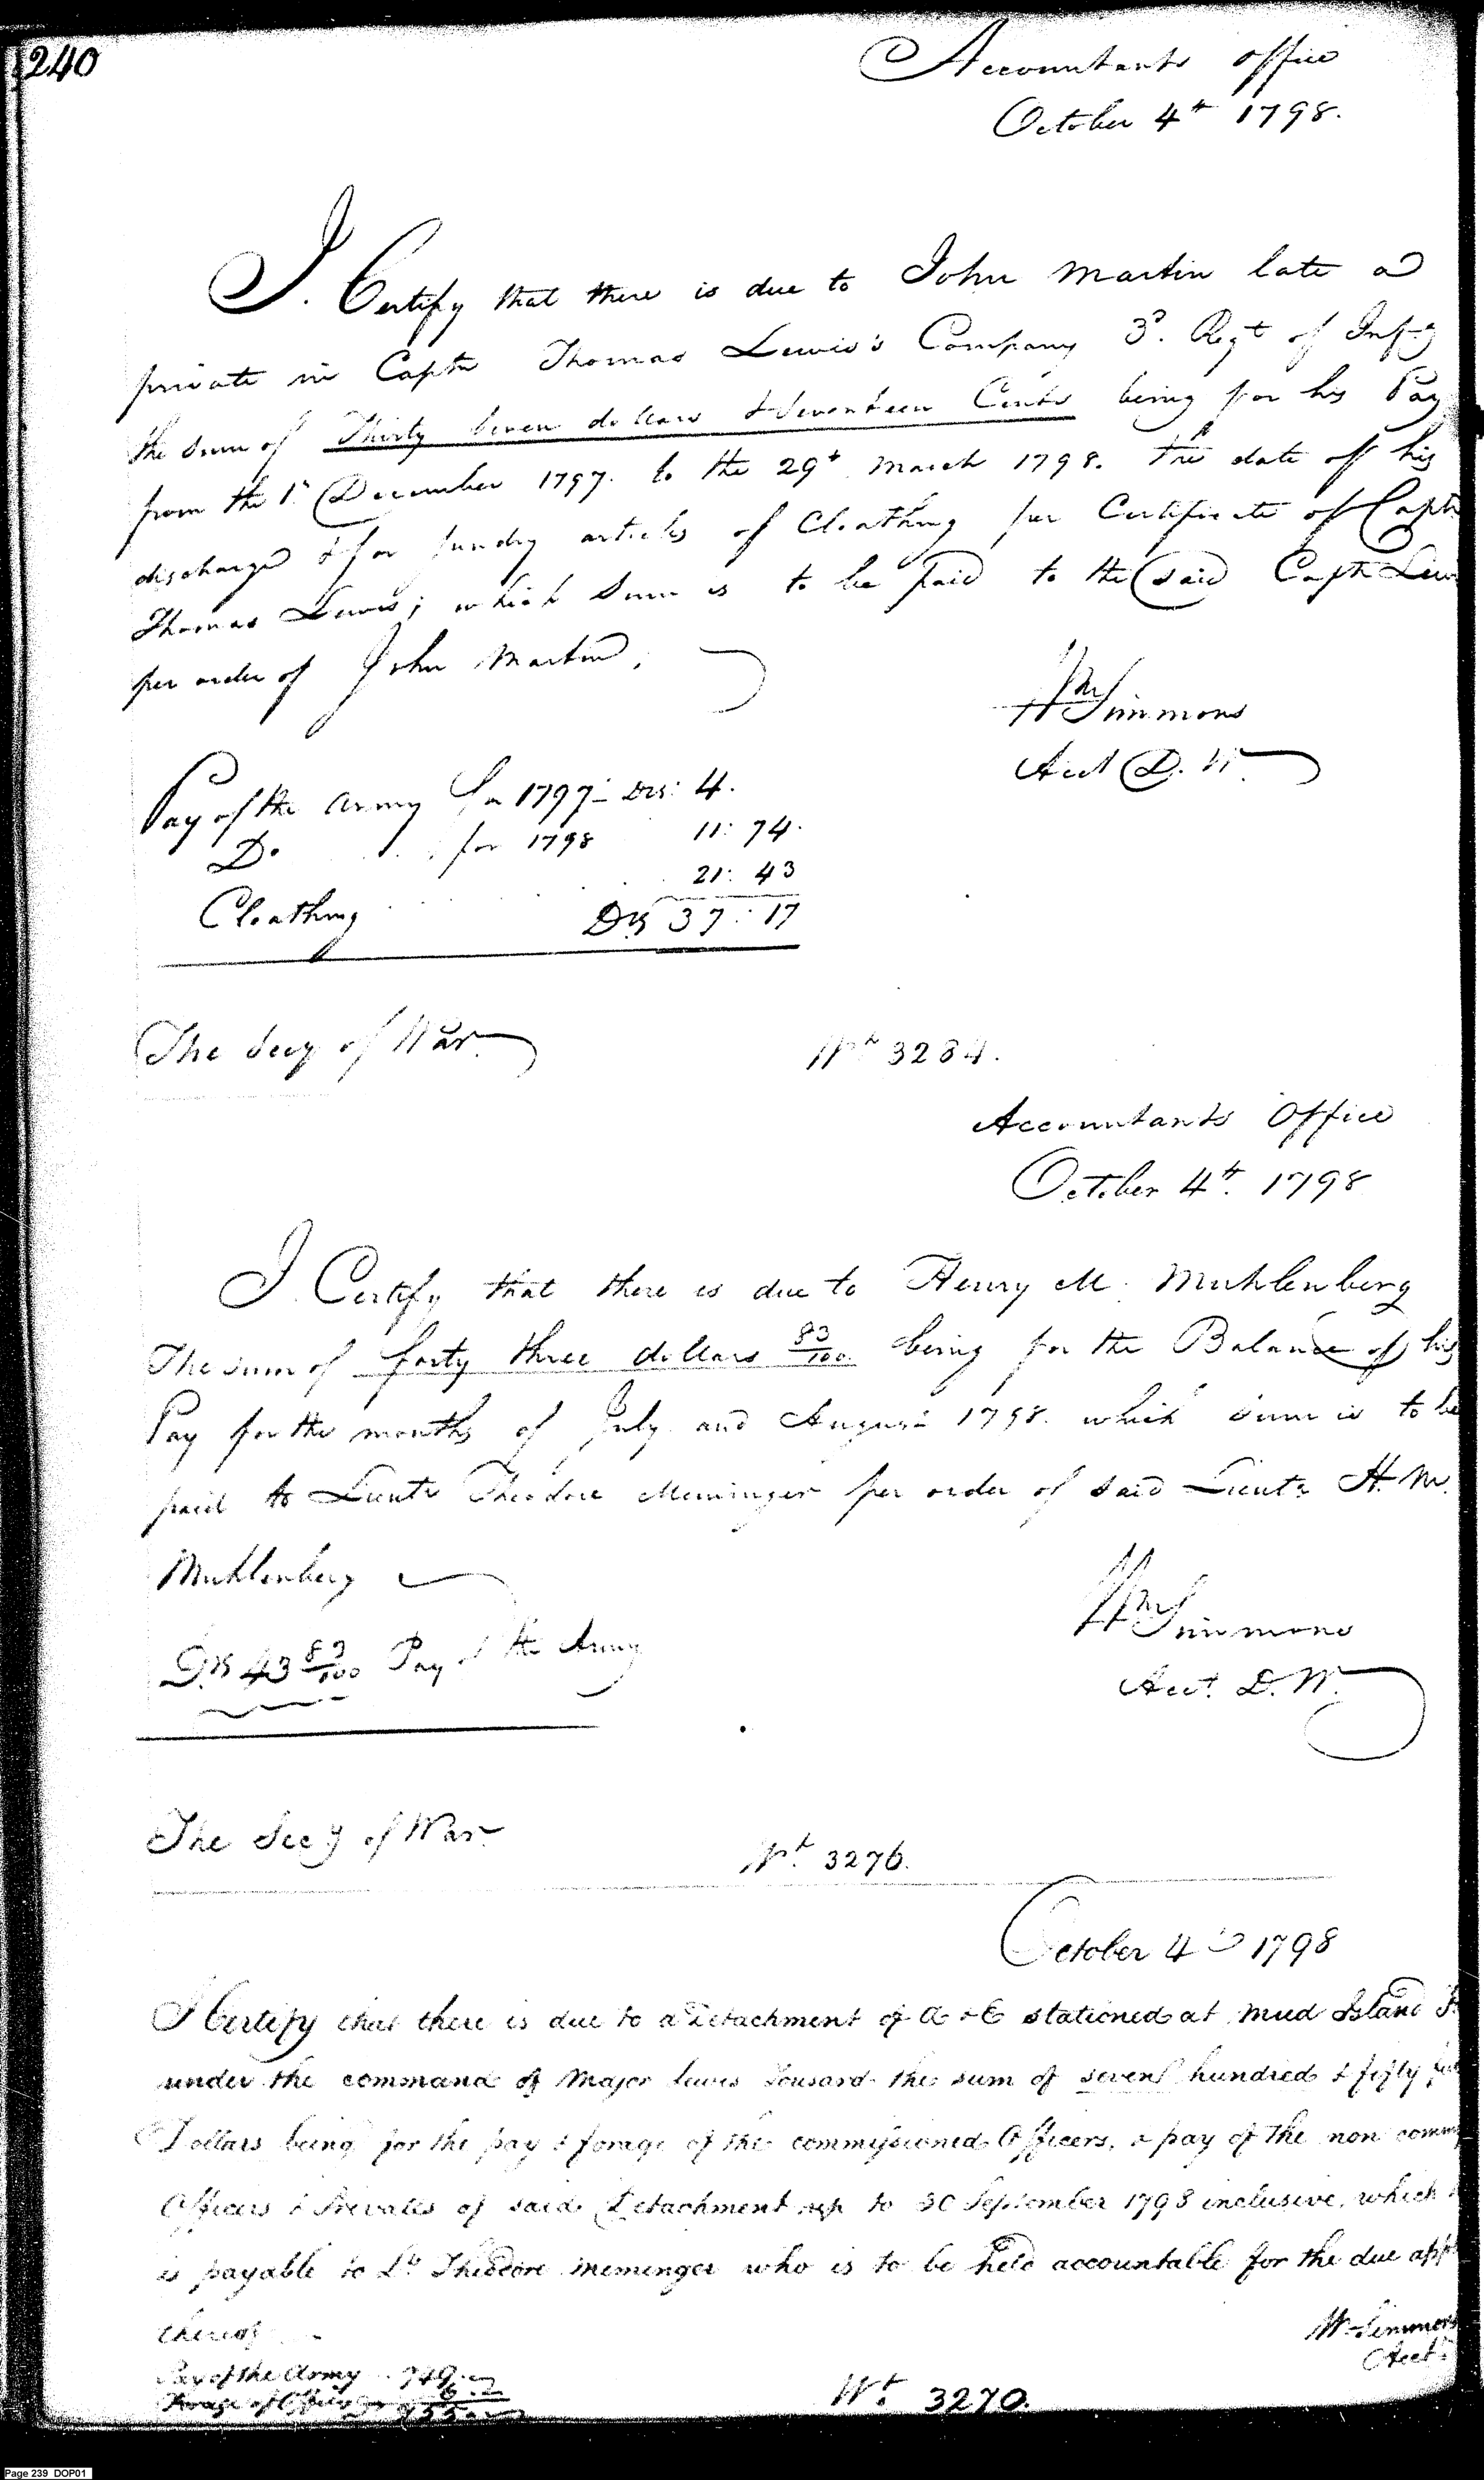 240
Accountants Office
October 4th 1798.
I. Certify that there is due to John Martin late a
private in Captn Thomas Lewis's Company 3d. Regt of Infy
the sum of Thirty Seven dollars & Seventeen Cents being for his Pay
from the 1st December 1797. to the 29th March 1798. the date of his
discharge & for sundry articles of Cloathing per Certificate of Captn
Thomas Lewis; which Sum is to be paid to the said Captn Lew
per order of John Martin;
Wm Simmons
Acct D. W.
Pay of the Army for 1797 - Drs: 4.
Do for 1798 11: 74.
21: 43
Cloathing Drs 37: 17
The Secy of War
Wt 3284.
Accountants Office
October 4th. 1798
I. Certify that there is due to Henry M. Muhlenberg
The sum of forty three dollars 83/100 being for the Balance of his
Pay for the months of July and August 1798. which sum is to be
paid to Lieutt Theodore Meminger per order of said Lieutt H. M.
Muhlenberg
Drs 43 83/100 Pay of the Army
Wm Simmons
Acct. D. W.
The Secy of War
Wt. 3276.
October 4th 1798
I Certify that there is due to a Detachment of A & E stationed at Mud Island
under the command of Major lewis Tousard the sum of seven hundred & fifty
Dollars being for the pay & forage of the commissioned Officers, & pay of the non comm
Officers & Privates of said Detachment up to 30 September 1798 inclusive, which
is payable to Lt Theodore Meminger who is to be held accountable for the due app
thereof
W Simmons
Acct
Pay of the Army 749.
Forage of Officers 6.
755.
Wt. 3270.
Page 239 DOP01